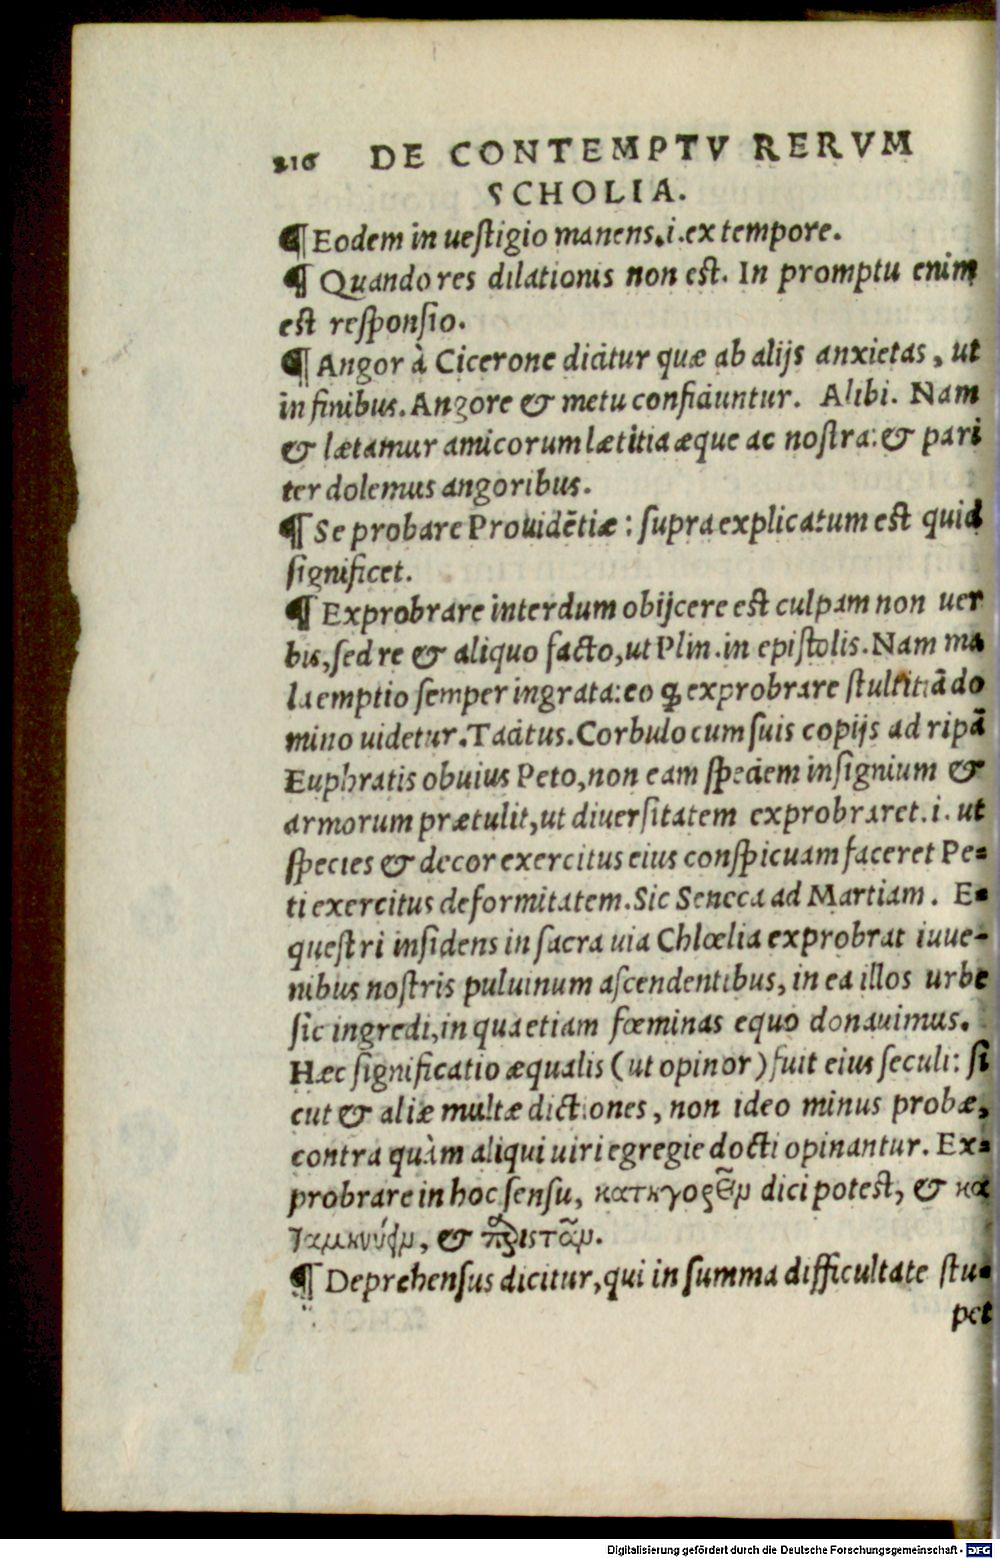 216 DE CONTEMPTV RERVM
SCHOLIA.
¶ Eodem in ueſtigio manens.i.ex tempore.
¶ Quando res dilationis non eſt. In promptu enim
eſt reſponſio.
¶ Angor à Cicerone dicitur quæ ab alijs anxietas, ut
in finibus. Angore & metu conficiuntur. Alibi. Nam
& lætamur amicorum lætitia æque ac noſtra: & pari
ter dolemus angoribus.
¶ Se probare Prouidẽtiæ: ſupra explicatum eſt quid
ſignificet.
¶ Exprobrare interdum obijcere eſt culpam non uer
bis, ſed re & aliquo facto, ut Plin. in epiſtolis. Nam ma
la emptio ſemper ingrata: eo ꝙ exprobrare ſtultitiã do
mino uidetur. Tacitus. Corbulo cum ſuis copijs ad ripã
Euphratis obuius Peto, non eam ſpeciem inſignium &
armorum prætulit, ut diuerſitatem exprobraret.i. ut
ſpecies & decor exercitus eius conſpicuam faceret Pe=
ti exercitus deformitatem. Sic Seneca ad Martiam. E=
queſtri inſidens in ſacra uia Chlœlia exprobrat iuue-
nibus noſtris puluinum aſcendentibus, in ea illos urbe
ſic ingredi, in qua etiam fœminas equo donauimus.
Hæc ſignificatio æqualis (ut opinor) fuit eius ſeculi: ſi
cut & aliæ multæ dictiones, non ideo minus probæ,
contra quàm aliqui uiri egregie docti opinantur. Ex=
probrare in hoc ſenſu, dici potest, & κα
&
¶ Deprehenſus dicitur, qui in ſumma difficultate ſtu=
pet
Digitalisierung gefördert durch die Deutsche Forschungsgemeinschaft - DFG